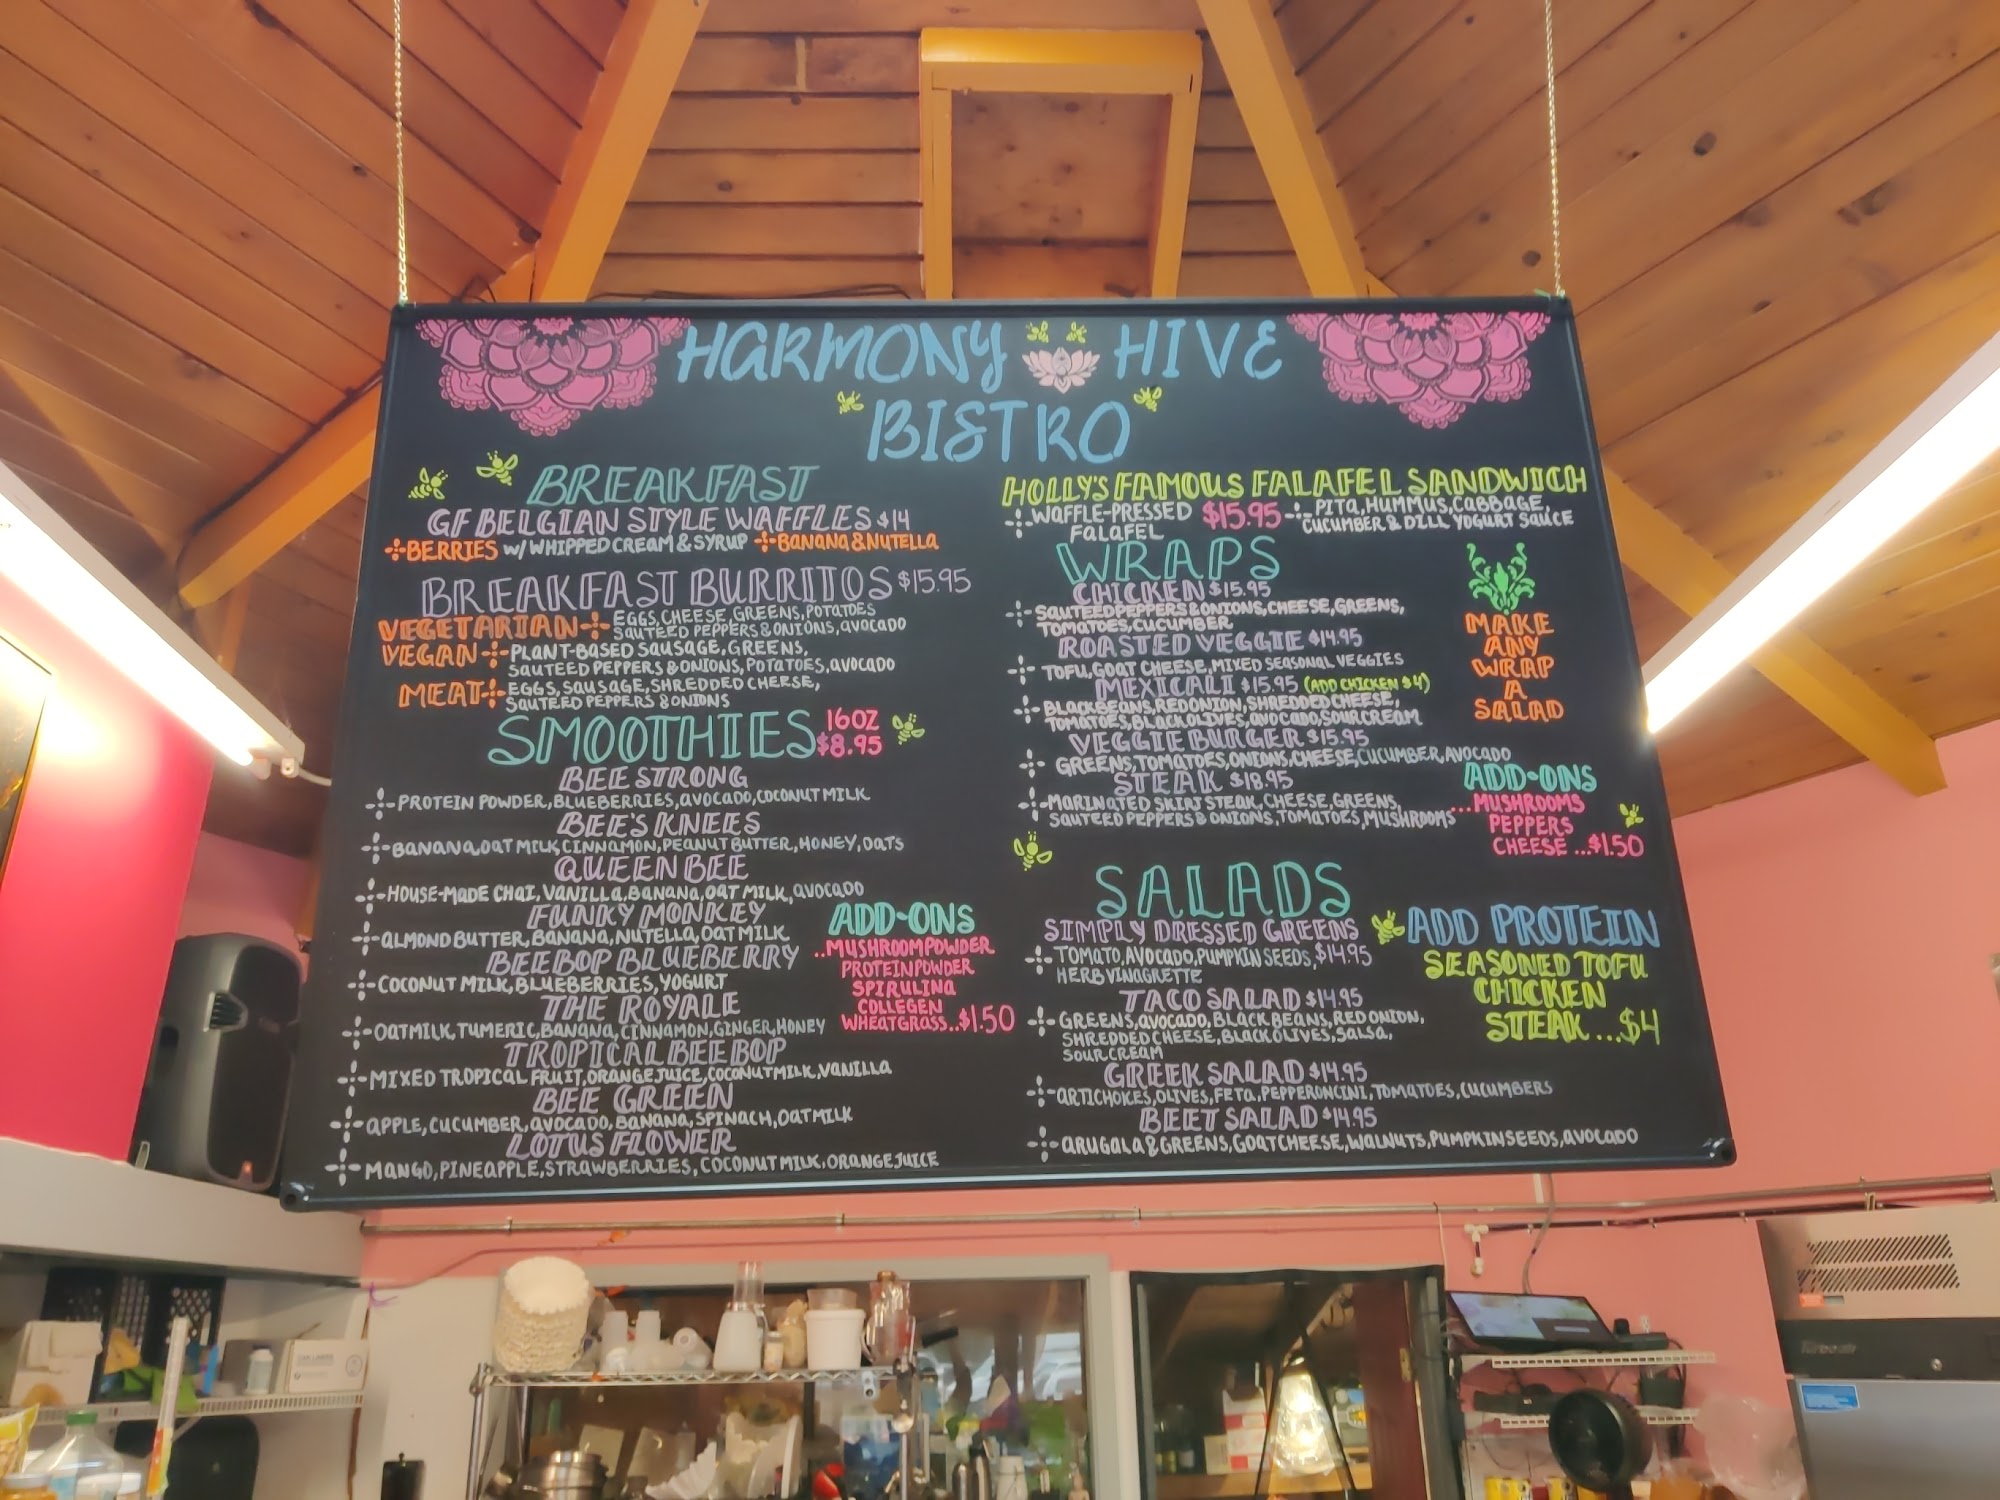 HARMONY HIVE
BISTRO
BREAKFAST
GF BELGIAN STYLE WAFFLES $14
BERRIES W/ WHIPPED CREAM & SYRUP BANANA & NUTELLA
BREAKFAST BURRITOS $15.95
VEGETARIAN EGGS, CHEESE, GREENS, POTATOES
SAUTEED PEPPERS & ONIONS, AVOCADO
VEGAN PLANT-BASED SAUSAGE, GREENS,
SAUTEED PEPPERS & ONIONS, POTATOES, AVOCADO
MEAT EGGS, SAUSAGE, SHREDDED CHERSE,
SAUTEED PEPPERS & ONIONS
SMOOTHIES 16OZ
$8.95
BEE STRONG
PROTEIN POWDER, BLUEBERRIES, AVOCADO, COCONUT MILK
BEE'S KNEES
BANANA, OAT MILK, CINNAMON, PEANUT BUTTER, HONEY, OATS
QUEEN BEE
HOUSE-MADE CHAI, VANILLA, BANANA, OAT MILK, AVOCADO
FUNKY MONKEY
ALMOND BUTTER, BANANA, NUTELLA, OAT MILK
BEEBOP BLUEBERRY
COCONUT MILK, BLUEBERRIES, YOGURT
THE ROYALE
OATMILK, TUMERIC, BANANA, CINNAMON, GINGER, HONEY
TROPICAL BEE BOP
MIXED TROPICAL FRUIT, ORANGE JUICE, COCONUT MILK, VANILLA
BEE GREEN
APPLE, CUCUMBER, AVOCADO, BANANA, SPINACH, OATMILK
LOTUS FLOWER
MANGO, PINEAPPLE, STRAWBERRIES, COCONUT MILK, ORANGE JUICE
ADD-ONS
..MUSHROOM POWDER
PROTEIN POWDER
SPIRULINA
COLLEGEN
WHEATGRASS..$1.50
HOLLY'S FAMOUS FALAFEL SANDWICH
WAFFLE-PRESSED $15.95 PITA, HUMMUS, CABBAGE,
FALAFEL CUCUMBER & DILL YOGURT SAUCE
WRAPS
CHICKEN $15.95
SAUTEED PEPPERS & ONIONS, CHEESE, GREENS,
TOMATOES, CUCUMBER
ROASTED VEGGIE $14.95
TOFU, GOAT CHEESE, MIXED SEASONAL VEGGIES
MEXICALI $15.95 (ADD CHICKEN $4)
BLACK BEANS, RED ONION, SHREDDED CHEESE,
TOMATOES, BLACK OLIVES, AVOCADO, SOUR CREAM
VEGGIE BURGER $15.95
GREENS, TOMATOES, ONIONS, CHEESE, CUCUMBER, AVOCADO
STEAK $18.95
MARINATED SKIRT STEAK, CHEESE, GREENS,
SAUTEED PEPPERS & ONIONS, TOMATOES, MUSHROOMS
MAKE
ANY
WRAP
A
SALAD
ADD-ONS
...MUSHROOMS
PEPPERS
CHEESE ...$1.50
SALADS
SIMPLY DRESSED GREENS
TOMATO, AVOCADO, PUMPKIN SEEDS, $14.95
HERB VINAGRETTE
TACO SALAD $14.95
GREENS, AVOCADO, BLACK BEANS, RED ONION,
SHREDDED CHEESE, BLACK OLIVES, SALSA,
SOUR CREAM
GREEK SALAD $14.95
ARTICHOKES, OLIVES, FETA, PEPPERONCINI, TOMATOES, CUCUMBERS
BEET SALAD $14.95
ARUGALA & GREENS, GOAT CHEESE, WALNUTS, PUMPKIN SEEDS, AVOCADO
ADD PROTEIN
SEASONED TOFU
CHICKEN
STEAK...$4